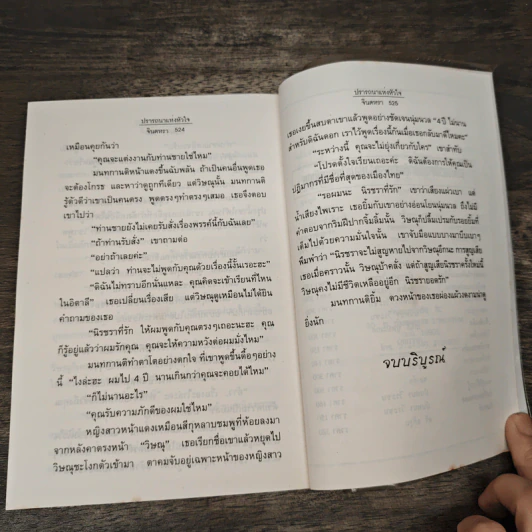 ปรารถนาแห่งหัวใจ
จินตหรา 524
เหมือนคุยกันว่า
"คุณจะแต่งงานกับท่านชายใช่ไหม"
มนทกานติหน้าแดงขึ้นฉับพลัน ถ้าเป็นคนอื่นพูดเธอ
จะต้องโกรธ และหาว่าดูถูกทีเดียว แต่วิษณุนั้น มนทกานติ
รู้ดีว่าเขาเป็นคนตรง พูดตรงๆทำตรงๆเสมอ เธอจึงตอบ
เขาไปว่า
"ท่านชายยังไม่เคยรับสั่งเรื่องพรรค์นี้กับฉันเลย"
"ถ้าท่านรับสั่ง" เขาถามต่อ
"อย่าถ้าเลยค่ะ"
"แปลว่า ท่านจะไม่พูดกับคุณด้วยเรื่องนี้งั้นเรอะฮะ"
"ดิฉันไม่ทราบอีกนั่นแหละ คุณคิดจะเข้าเรียนที่ไหน
ในอิตาลี" เธอเปลี่ยนเรื่องเสีย แต่วิษณุดูเหมือนไม่ได้ยิน
คำถามของเธอ
"นิรชราที่รัก ให้ผมพูดกับคุณตรงๆเถอะนะฮะ คุณ
ก็รู้อยู่แล้วว่าผมรักคุณ คุณจะให้ความหวังต่อผมมั่งไหม"
มนทกานติทำตาโตอย่างตกใจ ที่เขาพูดขึ้นดื้อๆอย่าง
นี้ "ไงล่ะฮะ ผมไป 4 ปี นานเกินกว่าคุณจะคอยได้ไหม"
"ก็ไม่นานอะไร"
"คุณรับความภักดีของผมใช่ไหม"
หญิงสาวหน้าแดงเหมือนสีกุหลาบชมพูที่ห้อยลงมา
จากหลังคาตรงหน้า "วิษณุ" เธอเรียกชื่อเขาแล้วหยุดไป
วิษณุชะโงกตัวเข้ามา ตาคมจับอยู่เฉพาะหน้าของหญิงสาว
ปรารถนาแห่งหัวใจ
จินตหรา 525
เธอเงยขึ้นสบตาเขาแล้วพูดอย่างชัดเจนนุ่มนวล "4 ปี ไม่นาน
สำหรับดิฉันดอก เราไว้พูดเรื่องนี้กันเมื่อเธอกลับมาดีไหมคะ"
"ระหว่างนี้ คุณจะไม่ยุ่งเกี่ยวกับใคร" เขาสำทับ
"โปรดตั้งใจเรียนเถอะค่ะ ดิฉันต้องการให้คุณเป็น
ปฏิมากรที่มีชื่อที่สุดของเมืองไทย"
"รอผมนะ นิรชราที่รัก" เขาว่าเสียงแผ่วเบา แต่
น้ำเสียงไพเราะ เธอยิ้มกับเขาอย่างอ่อนโยนนุ่มนวล ยังไม่มี
คำตอบจากริมฝีปากจิ้มลิ้มนั้น วิษณุก็ปลื้มเปรมกับรอยยิ้มที่
เต็มไปด้วยความมั่นใจนั้น เขาจับมือแบบบางมาบีบเบาๆ
พึมพำว่า "นิรชราจะไม่สูญหายไปจากวิษณุอีกนะ การสูญเสีย
เธอเมื่อคราวนั้น วิษณุบ้าคลั่ง แต่ถ้าสูญเสียนิรชราครั้งใหม่นี้
วิษณุคงไม่มีชีวิตเหลืออยู่อีก นิรชรายอดรัก"
มนทกานติยิ้ม ดวงหน้าของเธอผ่องแผ้วงดงามน่าดู
ยิ่งนัก
จบบริบูรณ์